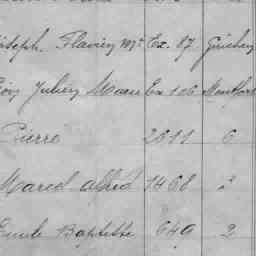 Joseph Flavien Mie Ex. 87 Guichen
Julien Marie Ex 106 Montfort
Pierre 2611 6
Marcel alfred 1468 2
Emile Baptiste 649 2